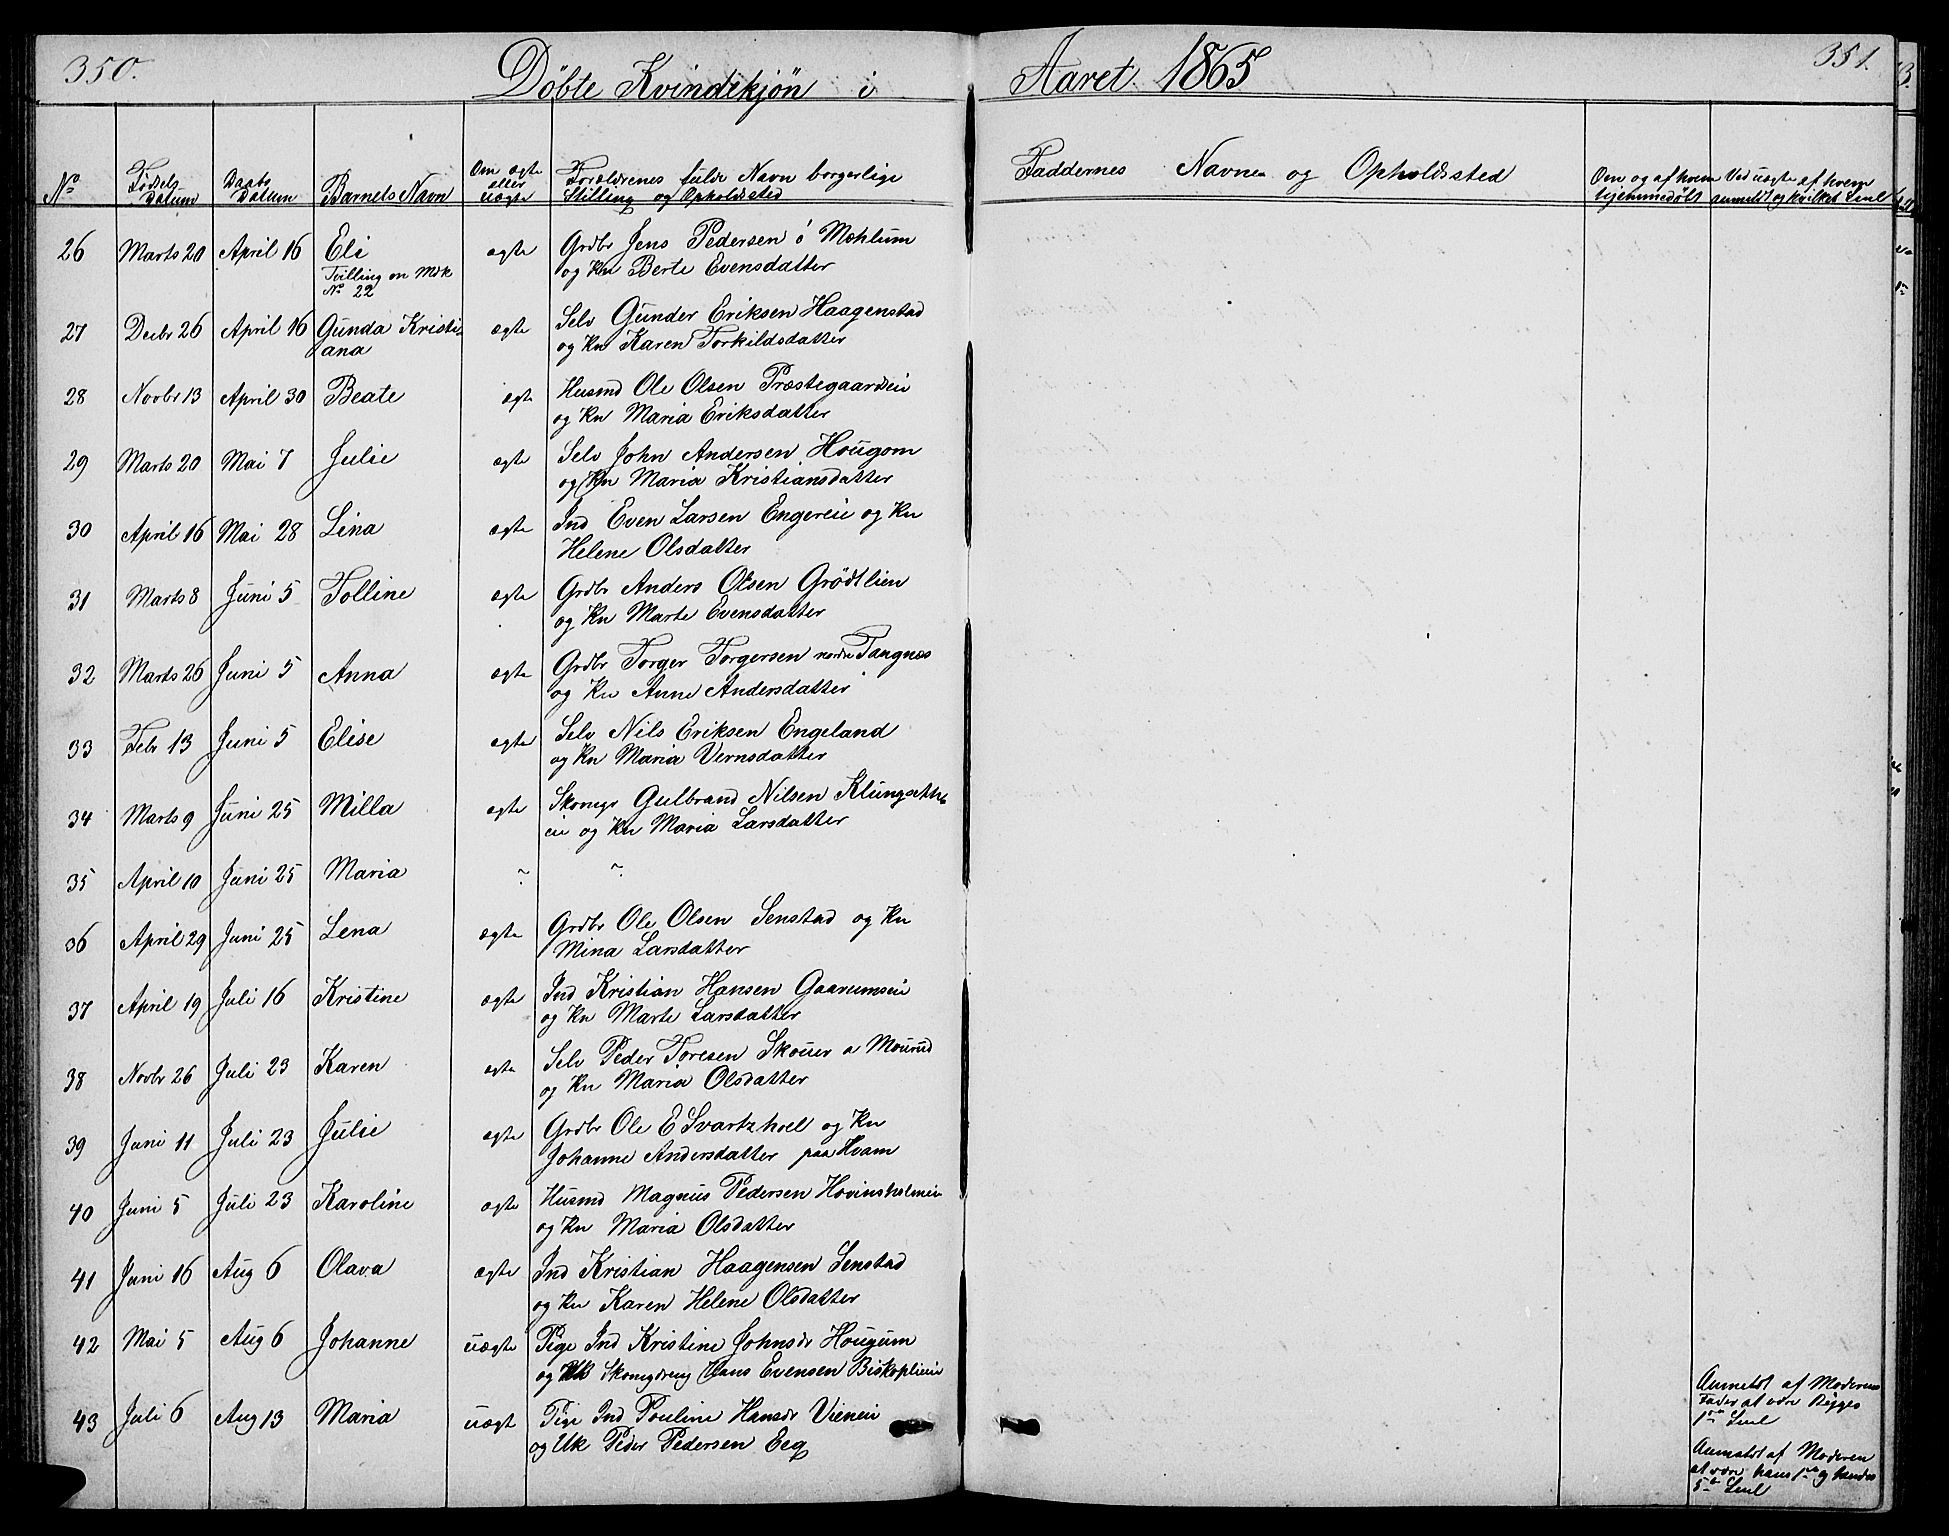 350.
Döbte Kvindekjön i Aaret 1865
351.
No
Födsels Datum
Daabs Datum
Barnets Navn
Om ægte eller uægte
Forældrenes fulde Navn borgerlige Stilling og Opholdssted
Faddernes Navne og Opholdssted
Om og af hvem hjemmedöbt
Ved uægte af hvem anmeldt og hvilket Leul
26 Marts 20 April 16 Eli ægte Grdbr Jens Pedersen ö Mæhlum
Tvilling en Mdk No 22 og Kn Berte Evensdatter
27 Decbr 26 April 16 Gunda Kristi- ægte Selv Gunder Eriksen Haagenstad
ana og Kn Karen Torkildsdatter
28 Novbr 13 April 30 Beate ægte Husmd Ole Olsen Præstegaardseie
og Kn Maria Eriksdatter
29 Marts 20 Mai 7 Julie ægte Selv John Andersen Hougom
og Kn Maria Kristiansdatter
30 April 16 Mai 28 Lina ægte Ind Even Larsen Engereie og Kn
Helene Olsdatter
31 Marts 8 Juni 5 Tolline ægte Grdbr Anders Olsen Grödtlien
og Kn Marte Evensdatter
32 Marts 26 Juni 5 Anna ægte Grdbr Torger Torgersen nordre Tangnæs
og Kn Anne Andersdatter
33 Febr 13 Juni 5 Elise ægte Selv Nils Eriksen Engeland
og Kn Maria Vernsdatter
34 Marts 9 Juni 25 Milla ægte Skomgr Gulbrand Nilsen
eie og Kn Maria Larsdatter
35 April 10 Juni 25 Maria ~ ~
36 April 29 Juni 25 Lena ægte Grdbr Ole Olsen Senstad og Kn
Mina Larsdatter
37 April 19 Juli 16 Kristine ægte Ind Kristian Hansen Gaarumseie
og Kn Marte Larsdatter
38 Novbr 26 Juli 23 Karen ægte Selv Peder Toresen Skouer a Mourud
og Kn Maria Olsdatter
39 Juni 11 Juli 23 Julie ægte Grdbr Ole E Svartzhoel og Kn
Johanne Andersdatter paa Hvam
40 Juni 5 Juli 23 Karoline ægte Husmd Magnus Pedersen Hovinsholmeie
og Kn Maria Olsdatter
41 Juni 16 Aug 6 Olava ægte Ind Kristian Haagensen Senstad
og Kn Karen Helene Olsdatter
42 Mai 5 Aug 6 Johanne uægte Pige Ind Kristine Johnsdr Hougum
og Uk Skomgdreng Hans Evensen Biskoplieeie
Anmeldt af Moderen
Fader at være Begges
1ste Leul
43 Juli 6 Aug 13 Maria uægt Pige Ind Pouline Hansdr Vieneie
og Uk Peder Pedersen Eeg
Anmeldt af Moderen
at være hans 1ste og hendes
5te Leul